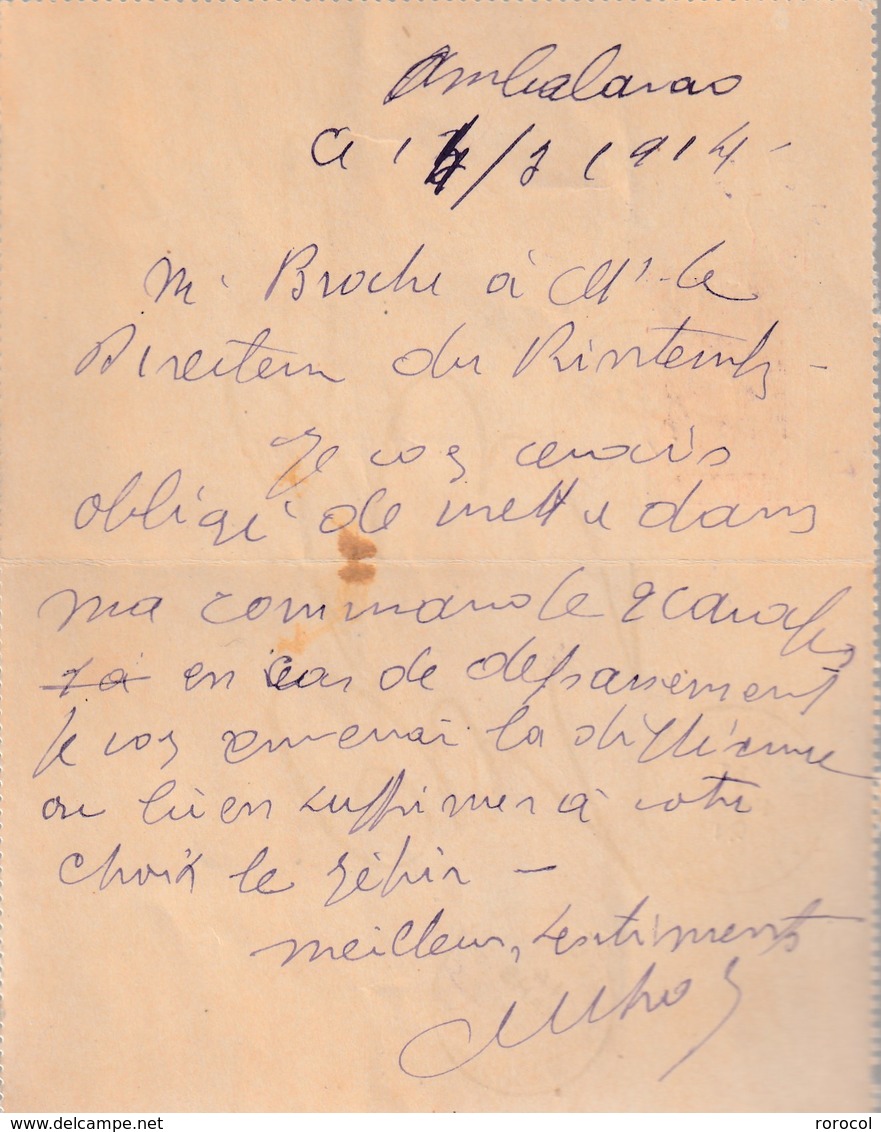 Ambalavao
a 14/3 1914 -
Mr Broche à Mr le
Directeur du Printemps -
Je vos serais
obligé de mettre dans
ma commande 2 carafes
en cas de dépassement
je vos enverrai la différence
ou bien supprimer à votre
choix le zéphir -
meilleurs sentiments
www.delcampe.net
rorocol